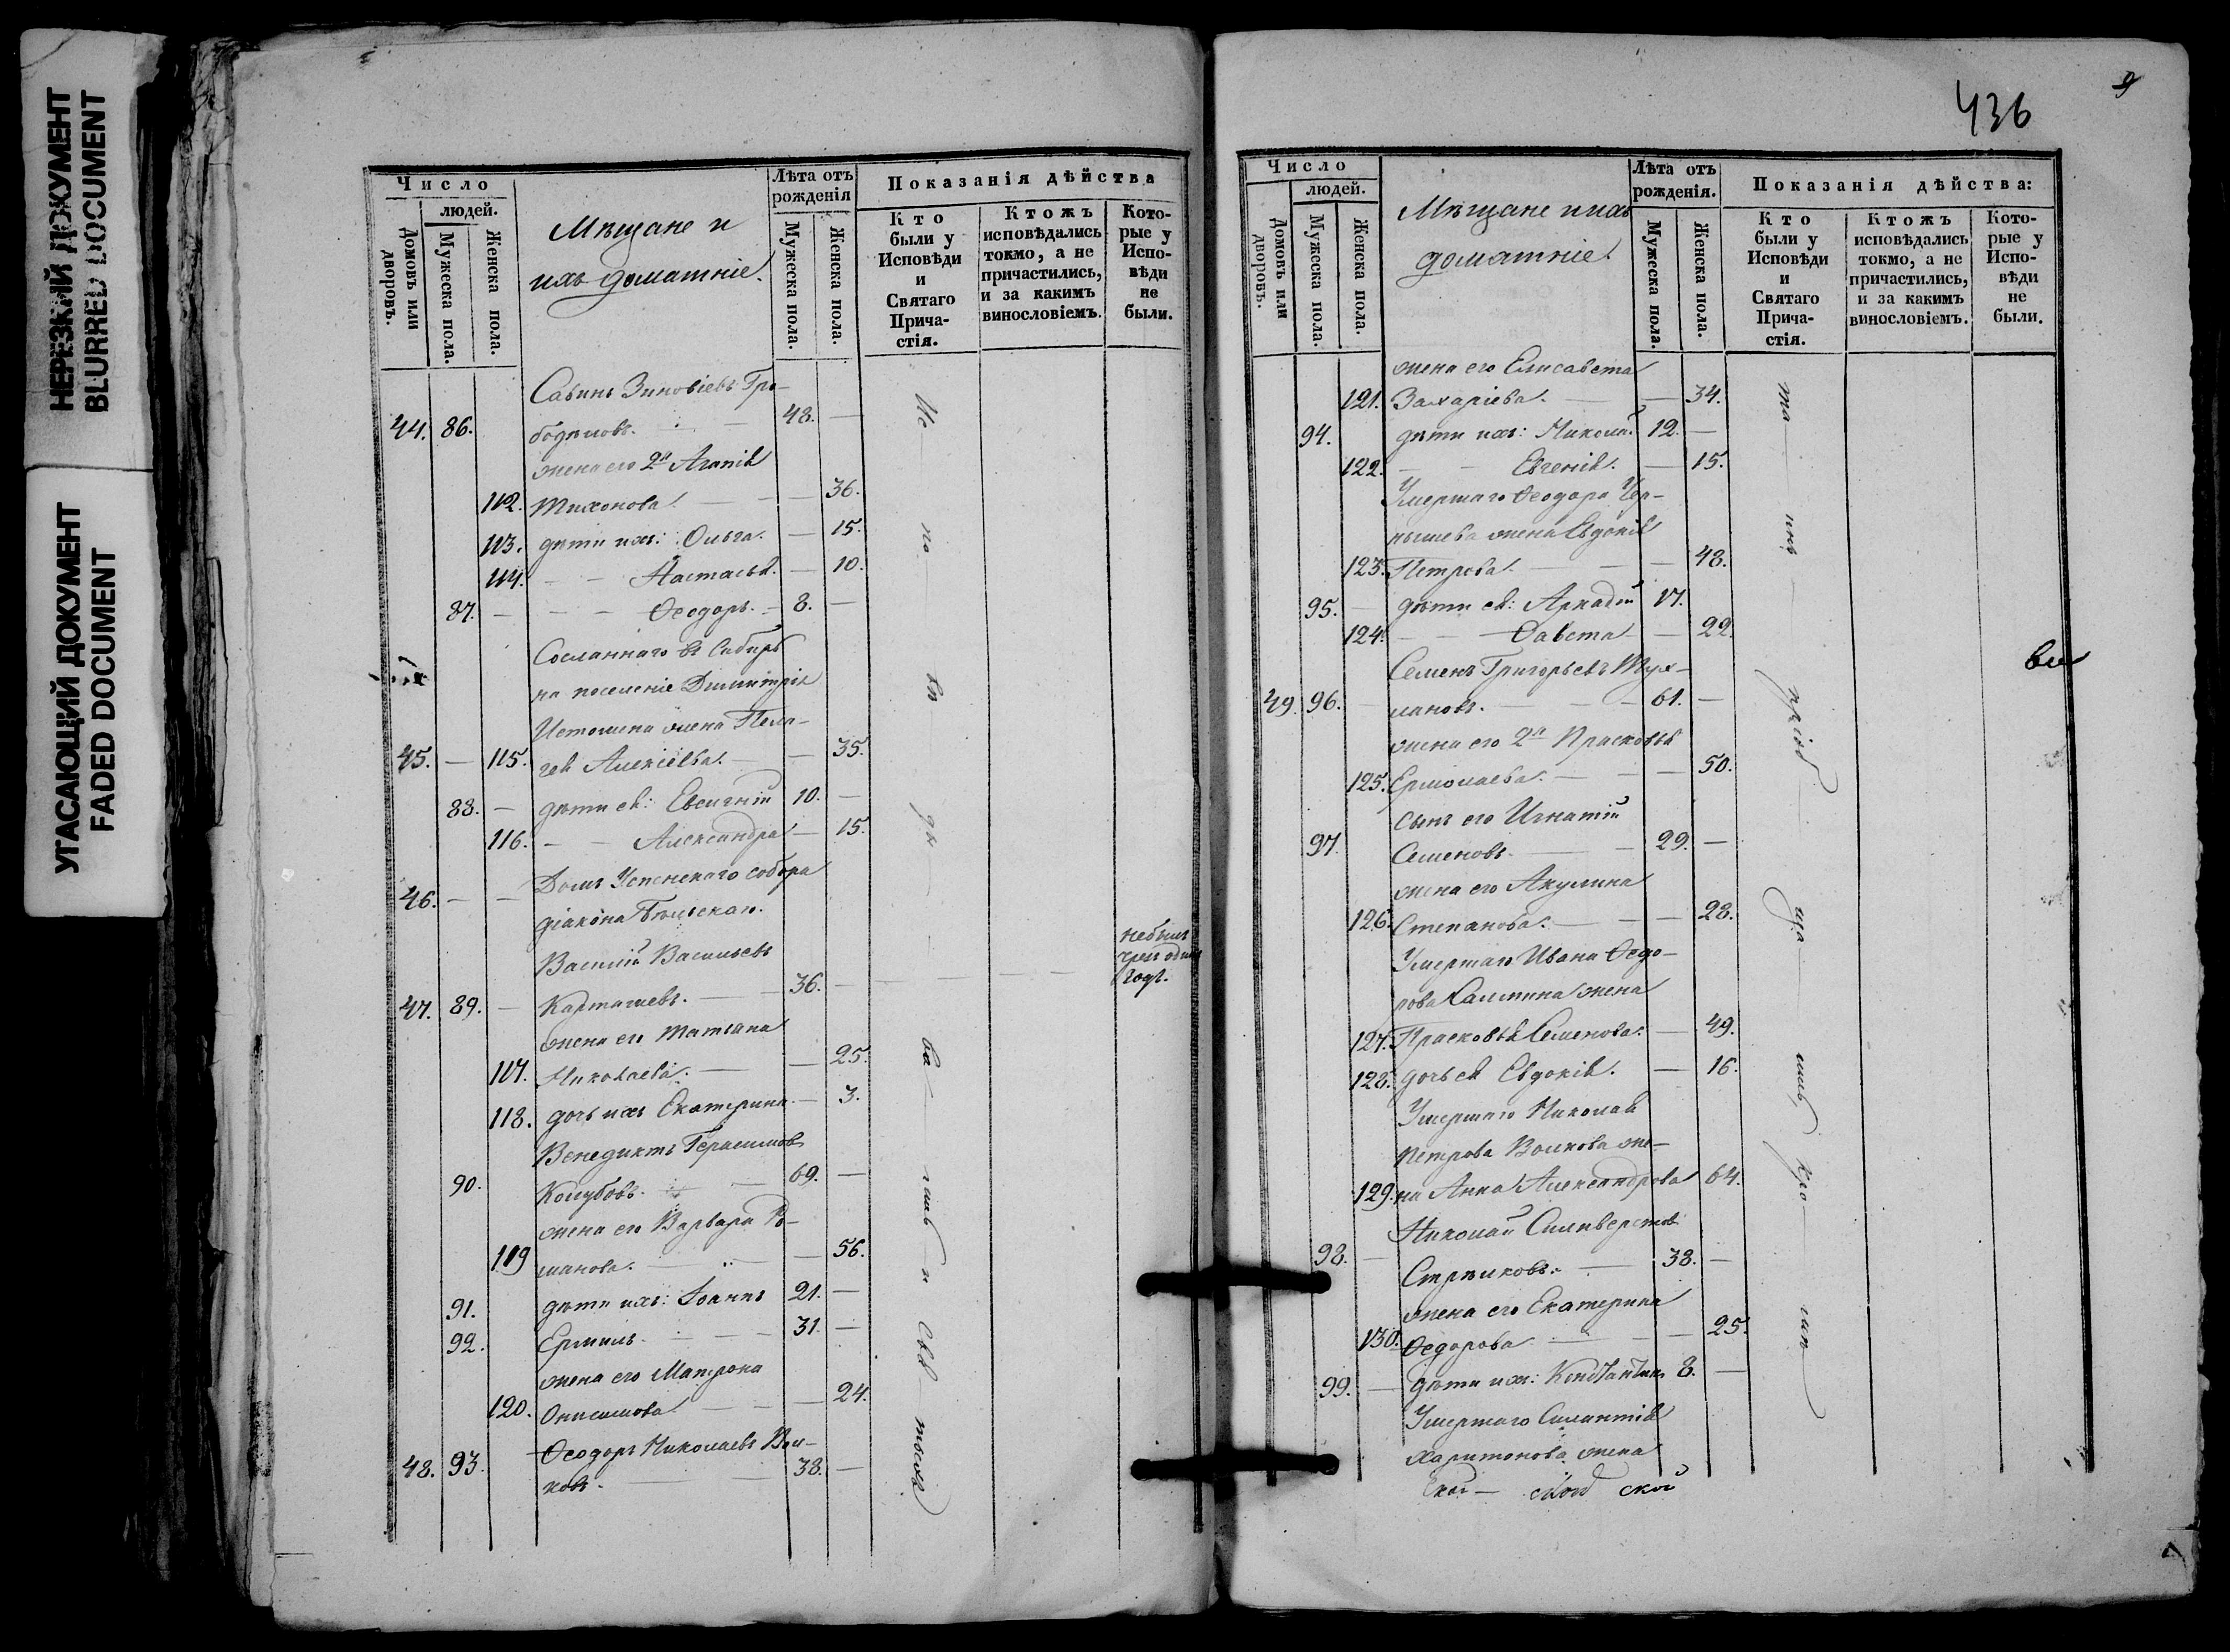 НЕРЕЗКИЙ ДОКУМЕНТ
BLURRED DOCUMENT
УГАСАЮЩИЙ ДОКУМЕНТ
FADED DOCUMENT
Число
людей.
Домовъ или дворовъ.
Мужеска пола.
Женска пола.
Мѣщане и
ихъ домашніе.
Лѣта отъ рожденія
Мужеска пола.
Женска пола.
Показанія дѣйства
Кто были у Исповѣди и Святаго Прича-стія.
Ктожъ исповѣдались токмо, а не причастились, и за какимъ винословіемъ.
Кото-рые у Испо-вѣди не были.
Савинъ Зиновіевъ
44. 86. 48. —
жена его 2я Агапія
112. Тихонова. — — 36.
113. дѣти ихъ: Ольга. — 15.
114. — — Настасья. — 10.
87. — — — Ѳеодоръ. — 8. —
Сосланнаго въ Сибирь
на поселеніе Димитрія
Истомина жена Пела-
45. — 115. гея Алексіева. — — 35.
88. — дѣти ея: Евсигній 10. —
116. — — Александра — 15.
Домъ Успенскаго собора
46. — — діакона
Василій Васильевъ
47. 89. — Карташевъ. — 36. — — —
небылъ
чрез одинъ
годъ.
жена его Татіана
117. Николаева. — — 25.
118. дочь ихъ Екатерина — 3.
Венедиктъ Герасимовъ
90. Колубовъ. — 69. —
жена его Варвара Ро-
119 манова. — — 56.
91. дѣти ихъ: Іоаннъ 21. —
92. Ермилъ. — — 31. —
жена его Матрона
120. Онисимова. — — 24.
Ѳеодоръ Николаевъ Вол-
48. 93. ковъ. — — 38. —
Ис — по — вѣ — ды — ва — лись и Свя тыхъ
436
9
Число
людей.
Домовъ или дворовъ.
Мужеска пола.
Женска пола.
Мѣщане и ихъ
домашніе.
Лѣта отъ рожденія.
Мужеска пола.
Женска пола.
Показанія дѣйства:
Кто были у Исповѣди и Святаго Прича-стія.
Ктожъ исповѣдались токмо, а не причастились, и за какимъ винословіемъ.
Кото-рые у Испо-вѣди не были.
жена его Елисавета
121. Захаріева. — — 34.
94. дѣти ихъ: Николай. 12. —
122. — — Евгенія. — 15.
Умершаго Ѳеодора Чер-
нышева жена Евдокія
123. Петрова. — — 48.
95. — дѣти ея: Аркадій 17.
124. — — — 22.
Семенъ Григорьевъ Тух-
49. 96. — мановъ. — — 61. —
жена его 2я Прасковья
125. Ермолаева. — — 50.
сынъ его Игнатій
97. Семеновъ. — — 29. —
жена его Акулина
126. Степанова. — — 28.
Умершаго Ивана Ѳедо-
рова жена
127. Прасковья Семенова. — 49.
128. дочь ея Евдокія. — 16.
Умершаго Николая
Петрова Волкова же-
129. на Анна Александрова 64.
Николай Силиверстовъ
98. — Стрѣлковъ. — 38. —
жена его Екатерина
130. Ѳедорова — — 25.
99. — дѣти ихъ: Константинъ 8. —
Умершаго
Харитонова жена
та — инъ — пріоб — ща — лись